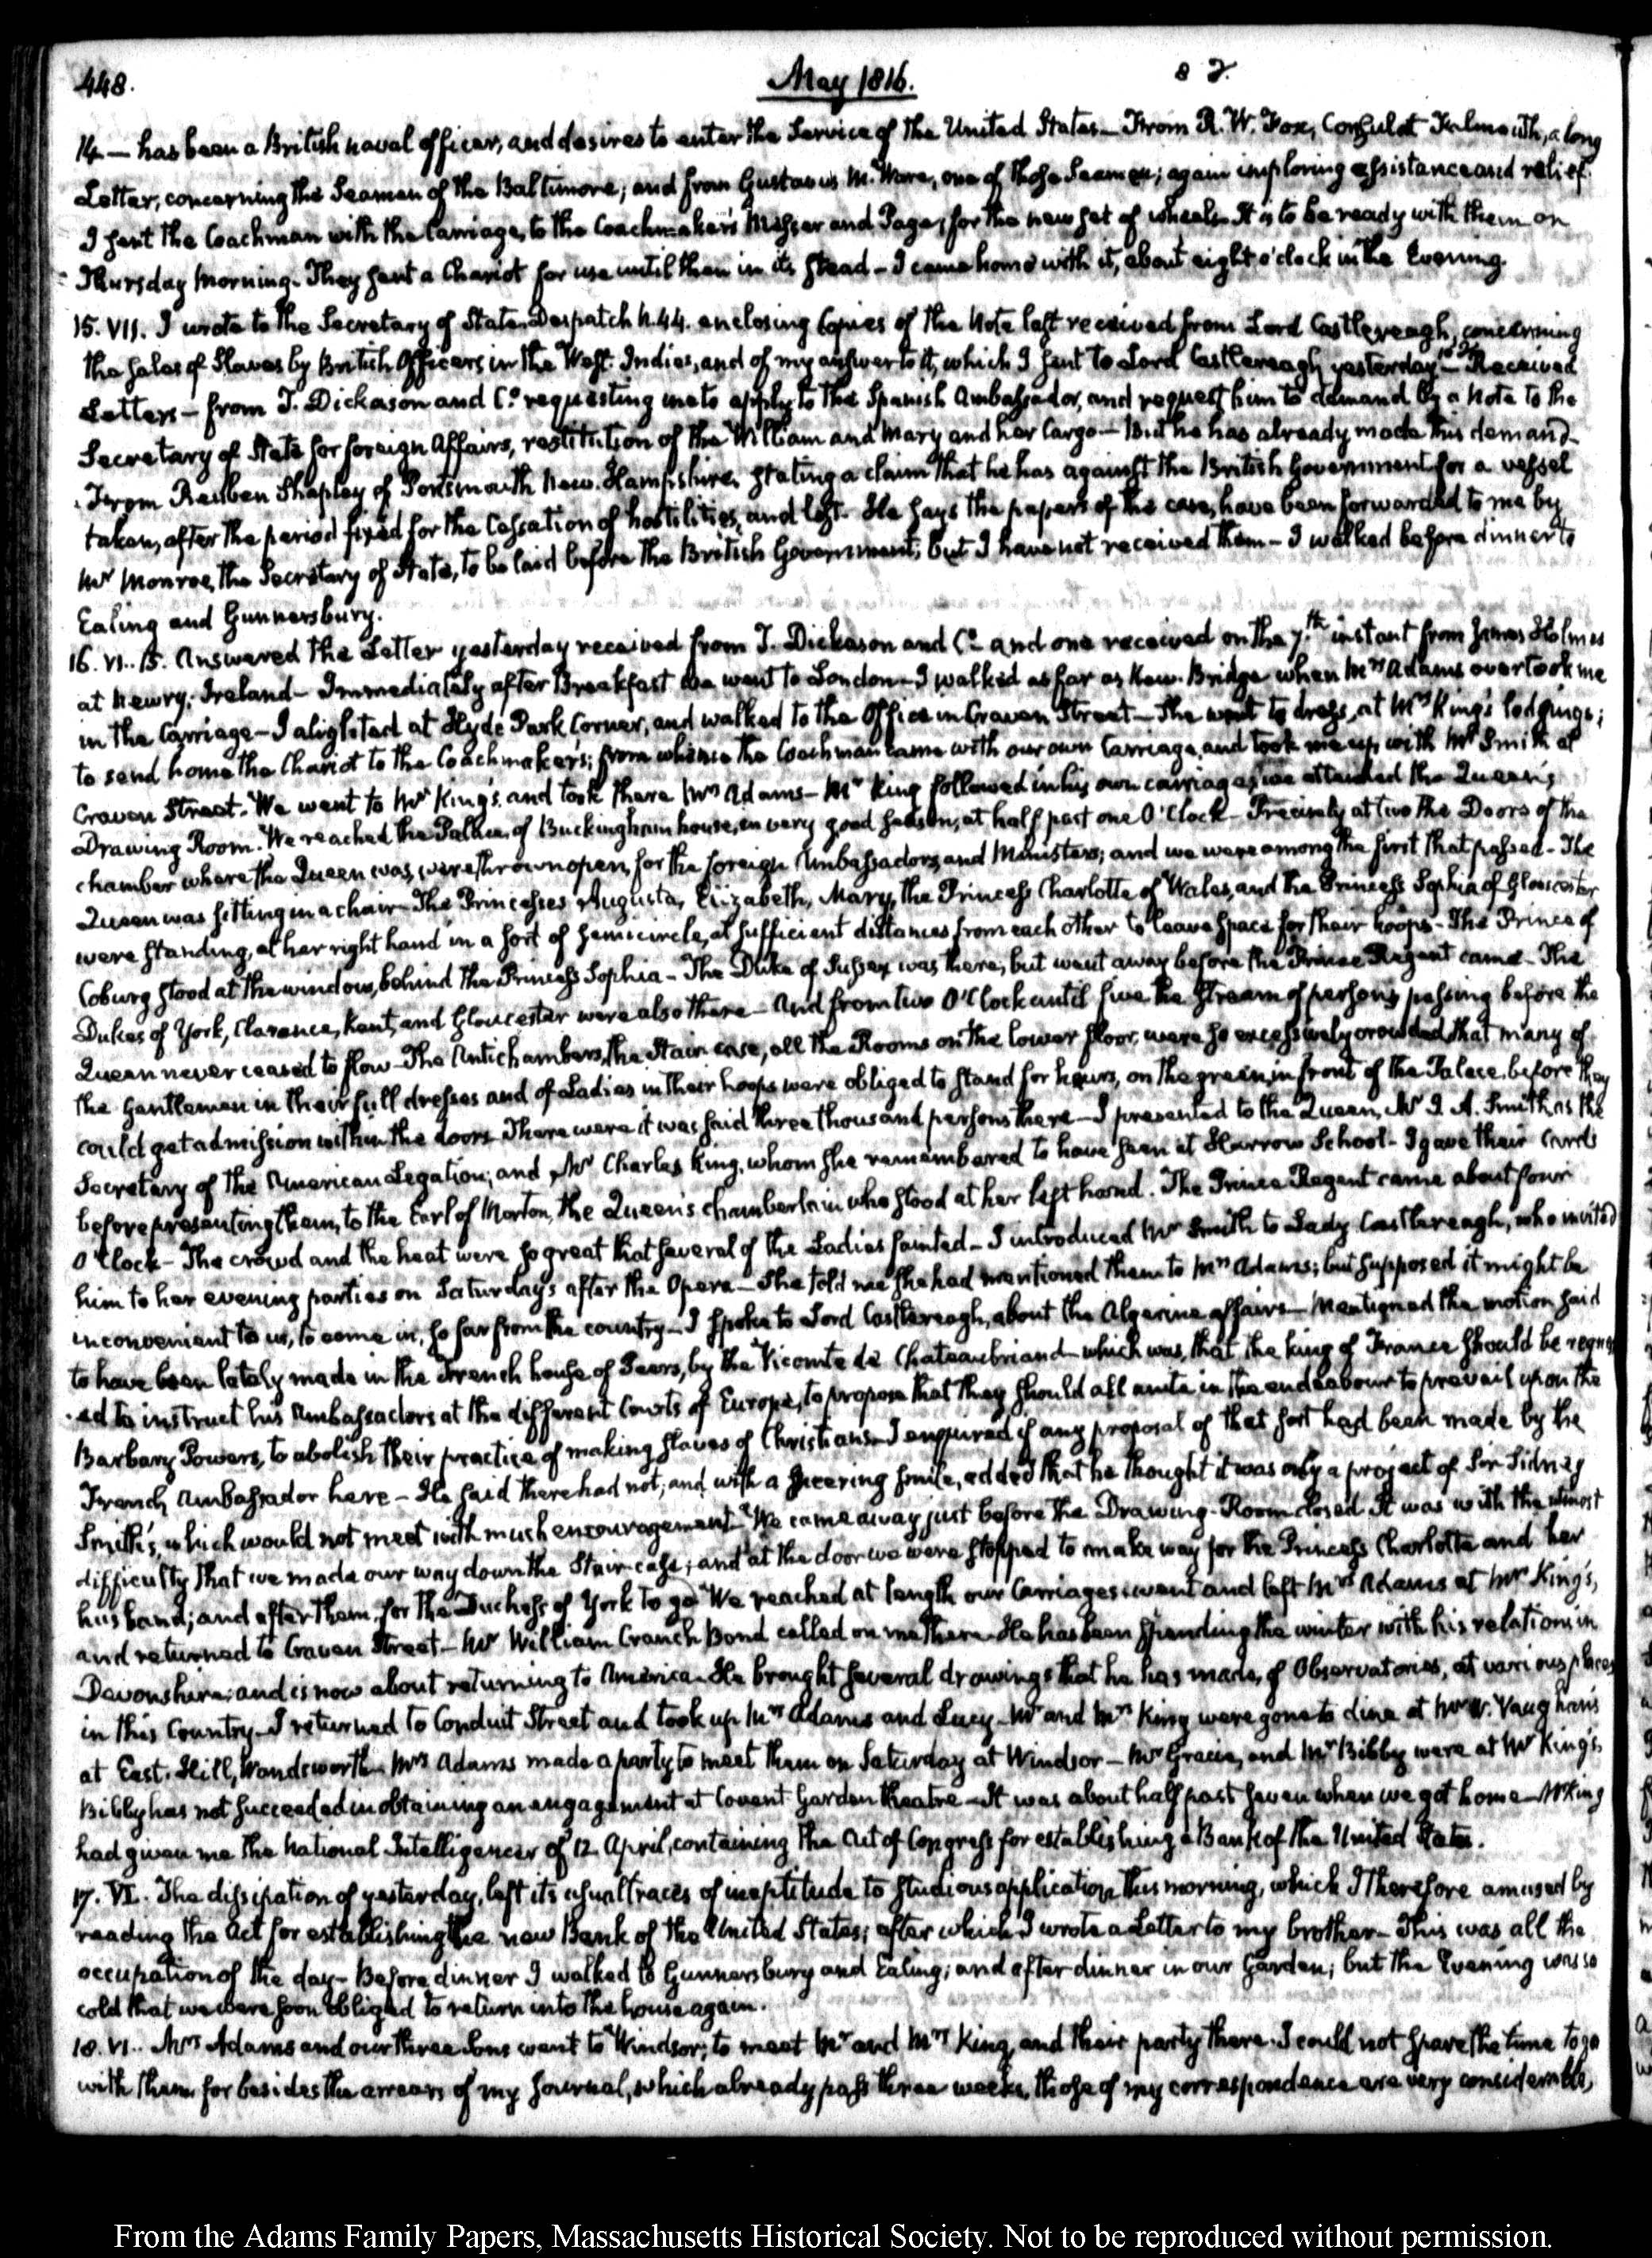 448.
May 1816.
14 — has been a British naval officer, and desires to enter the Service of the United States — From R. W. Fox, Consul at Falmouth, a long
Letter, concerning the Seamen of the Baltimore; and from Gustavus M. Ware, one of those Seamen; again imploring assistance and relief.
I sent the Coachman with the Carriage, to the Coachmaker's Messer and Page, for the new set of wheels. It is to be ready with them on
Thursday morning. They sent a Chariot for use until then in its stead — I came home with it, about eight o'clock in the Evening.
15. VII. I wrote to the Secretary of State. Despatch N. 44. enclosing Copies of the Note last received from Lord Castlereagh, concerning
the sales of Slaves by British Officers in the West-Indies, and of my answer to it, which I sent to Lord Castlereagh yesterday — Received
Letters — from T. Dickason and Co. requesting me to apply to the Spanish Ambassador, and request him to demand by a Note to the
Secretary of State for foreign Affairs, restitution of the William and Mary and her Cargo — But he has already made this demand —
From Reuben Shapley of Portsmouth New-Hampshire, stating a claim that he has against the British Government for a vessel
taken, after the period fixed for the Cessation of hostilities, and lost. He says the papers of his case, have been forwarded to me by
Mr Monroe, the Secretary of State, to be laid before the British Government; but I have not received them — I walked before dinner to
Ealing and Gunnersbury.
16. VI. 15. Answered the Letter yesterday received from T. Dickason and Co. and one received on the 7th instant from James Holmes
at Newry, Ireland — Immediately after Breakfast we went to London — I walked as far as Kew-Bridge when Mrs Adams overtook me
in the Carriage — I alighted at Hyde Park Corner, and walked to the Office in Craven Street — She went to dress, at Mrs King's lodgings;
to send home the Chariot to the Coachmaker's; from whence the Coachman came with our own Carriage, and took me up with Mr Smith at
Craven Street. We went to Mr King's, and took there Mrs Adams — Mr King followed in his own carriage; we attended the Queen's
Drawing Room. We reached the Palace, of Buckingham house, in very good season, at half past one O'Clock — Precisely at two the Doors of the
chamber where the Queen was, were thrown open, for the foreign Ambassadors, and Ministers; and we were among the first that passed — The
Queen was sitting in a chair — The Princesses Augusta, Elizabeth, Mary, the Princess Charlotte of Wales, and the Princess Sophia of Gloucester
were standing, at her right hand in a sort of semicircle, at sufficient distances from each other to leave space for their hoops — The Prince of
Coburg stood at the window, behind the Princess Sophia — The Duke of Sussex was there, but went away before the Prince Regent came — The
Dukes of York, Clarence, Kent, and Gloucester were also there — And from two O'Clock until five the stream of persons passing before the
Queen never ceased to flow — The Antichambers, the Stair case, all the Rooms on the lower floor, were so excessively crowded that many of
the Gentlemen in their full dresses and of Ladies in their hoops were obliged to stand for hours, on the green, in front of the Palace, before they
could get admission within the doors. There were it was said three thousand persons there — I presented to the Queen, Mr J. A. Smith as the
Secretary of the American Legation; and Mr Charles King, whom she remembered to have seen at Harrow School — I gave their Cards
before presenting them, to the Earl of Morton, the Queen's chamberlain who stood at her left hand. The Prince Regent came about four
O'Clock — The crowd and the heat were so great that several of the Ladies fainted — I introduced Mr Smith to Lady Castlereagh, who invited
him to her evening parties on Saturdays after the Opera — She told me she had mentioned them to Mrs Adams; but supposed it might be
inconvenient to us, to come in, so far from the country — I spoke to Lord Castlereagh, about the Algerine affairs — Mentioned the motion said
to have been lately made in the French house of Peers, by the Vicomte de Chateaubriand — which was, that the king of France should be
ed to instruct his Ambassadors at the different Courts of Europe, to propose that they should all unite in the endeavour to prevail upon the
Barbary Powers, to abolish their practice of making slaves of Christians — I enquired if any proposal of that sort had been made by the
French Ambassador here — He said there had not; and, with a sneering smile, added that he thought it was only a project of Sir Sidney
Smith's, which would not meet with much encouragement — We came away just before the Drawing-Room closed. It was with the utmost
difficulty that we made our way down the Stair-case; and at the door we were stopped to make way for the Princess Charlotte and her
husband; and after them, for the Duchess of York to go. We reached at length our Carriages, went and left Mrs Adams at Mr King's,
and returned to Craven Street — Mr William Cranch Bond called on me there. He has been spending the winter with his relations in
Devonshire; and is now about returning to America — He brought several drawings that he has made, of Observatories, at various places
in this Country — I returned to Conduit Street and took up Mrs Adams and Lucy — Mr and Mrs King were gone to dine at Mr W. Vaughan's
at East-Hill, Wandsworth — Mrs Adams made a party to meet them on Saturday at Windsor — Mr Gracie, and Mr Bibby were at Mr King's.
Bibby has not succeeded in obtaining an engagement at Covent Garden theatre — It was about half past seven when we got home — Mr King
had given me the National Intelligencer of 12 April, containing the Act of Congress for establishing a Bank of the United States.
17. VI. The dissipation of yesterday, left its usual traces of ineptitude to studious application this morning, which I therefore amused by
reading the Act for establishing the new Bank of the United States; after which I wrote a Letter to my brother — This was all the
occupation of the day — Before dinner I walked to Gunnersbury and Ealing; and after dinner in our Garden; but the Evening was so
cold that we were soon obliged to return into the house again.
18. VI. Mrs Adams and our three Sons went to Windsor; to meet Mr and Mrs King, and their party there. I could not spare the time to go
with them, for besides the arrears of my Journal, which already pass three weeks, those of my correspondence are very considerable,
From the Adams Family Papers, Massachusetts Historical Society. Not to be reproduced without permission.